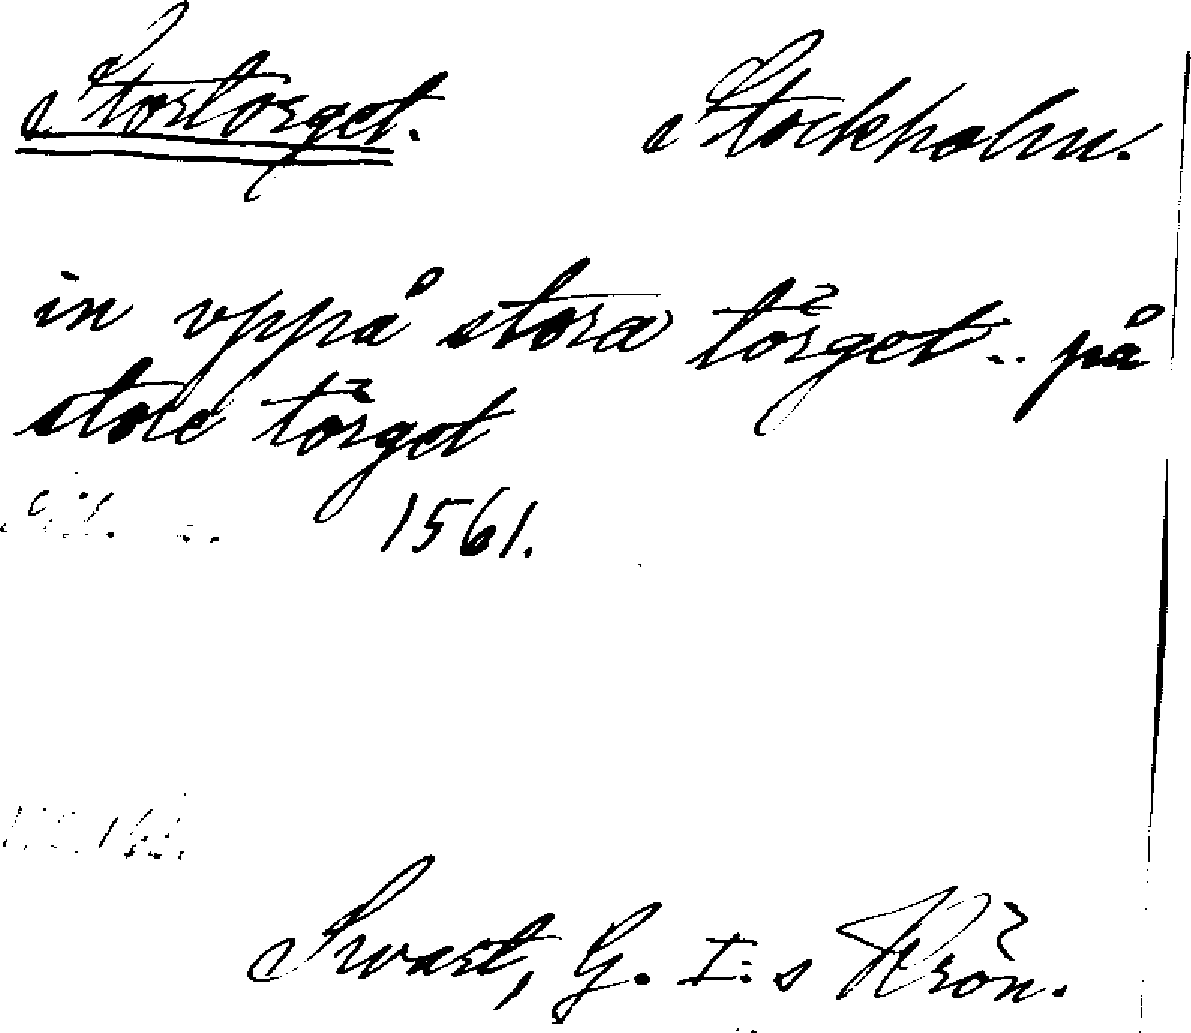 Stortorget. Stockholm.
in vppå stora törget .. på
store törget
1561.
Swart, G. I:s Krön.